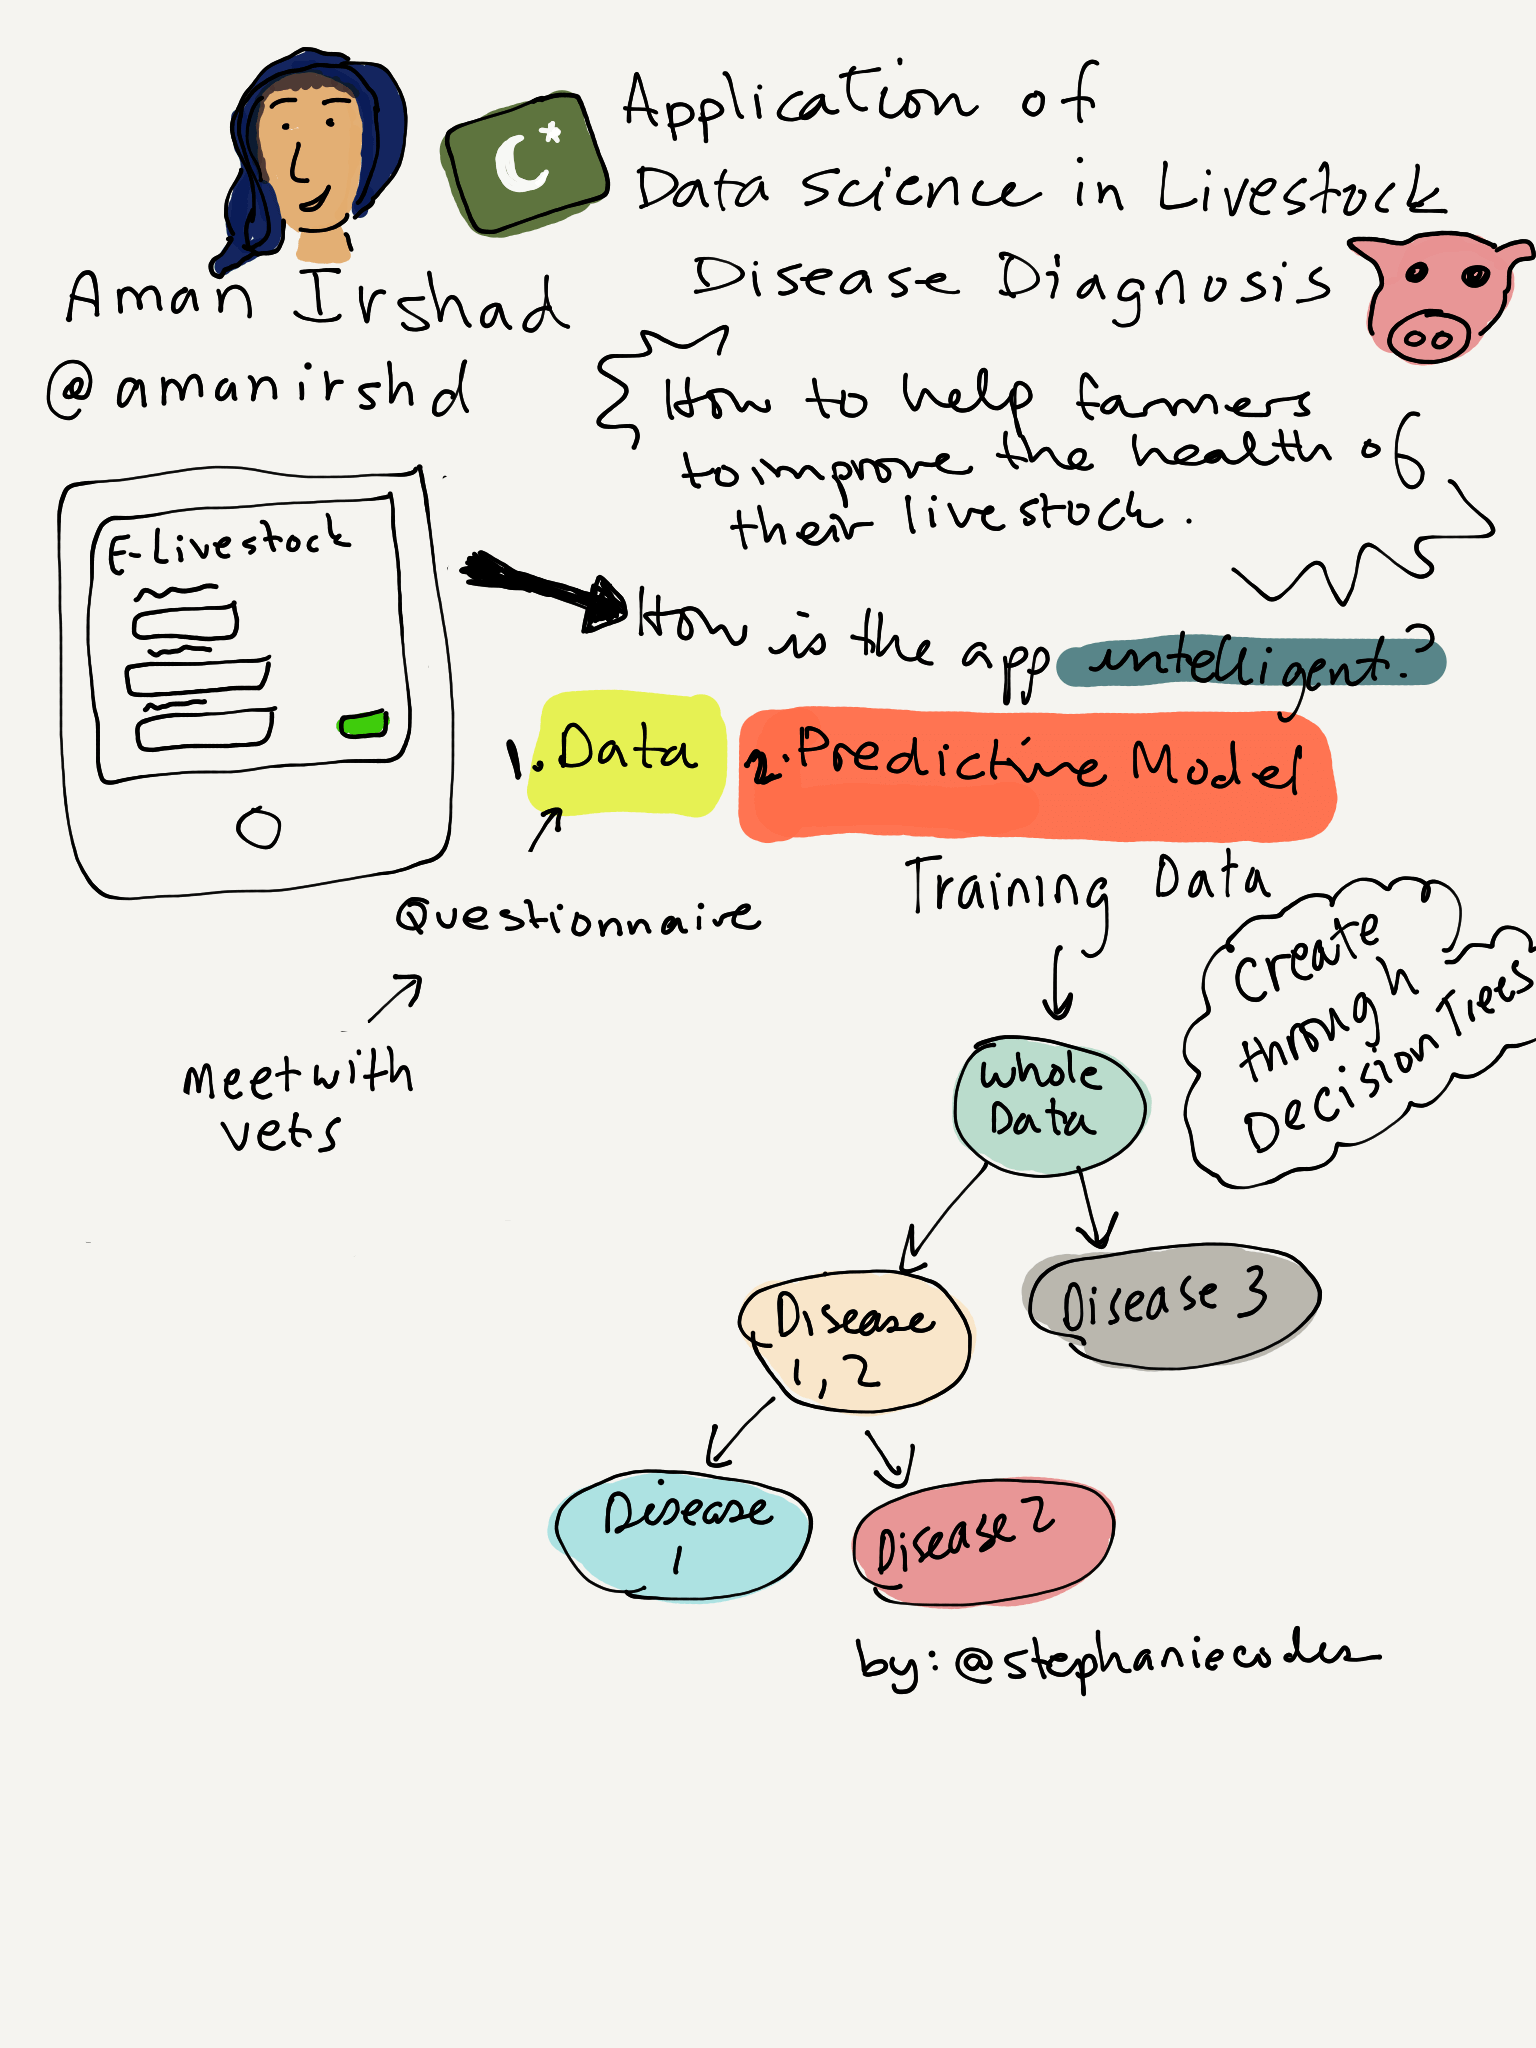 Application of
Data Science in Livestock
Disease Diagnosis
C*
Aman Irshad
@amanirshd
How to help farmers
to improve the health of
their livestock.
E-Livestock
How is the app intelligent?
1. Data
2. Predictive Model
Questionnaire
Meet with
vets
Training Data
Create
through
Decision Trees
Whole
Data
Disease
1,2
Disease 3
Disease
1
Disease 2
by: @stephaniecodes